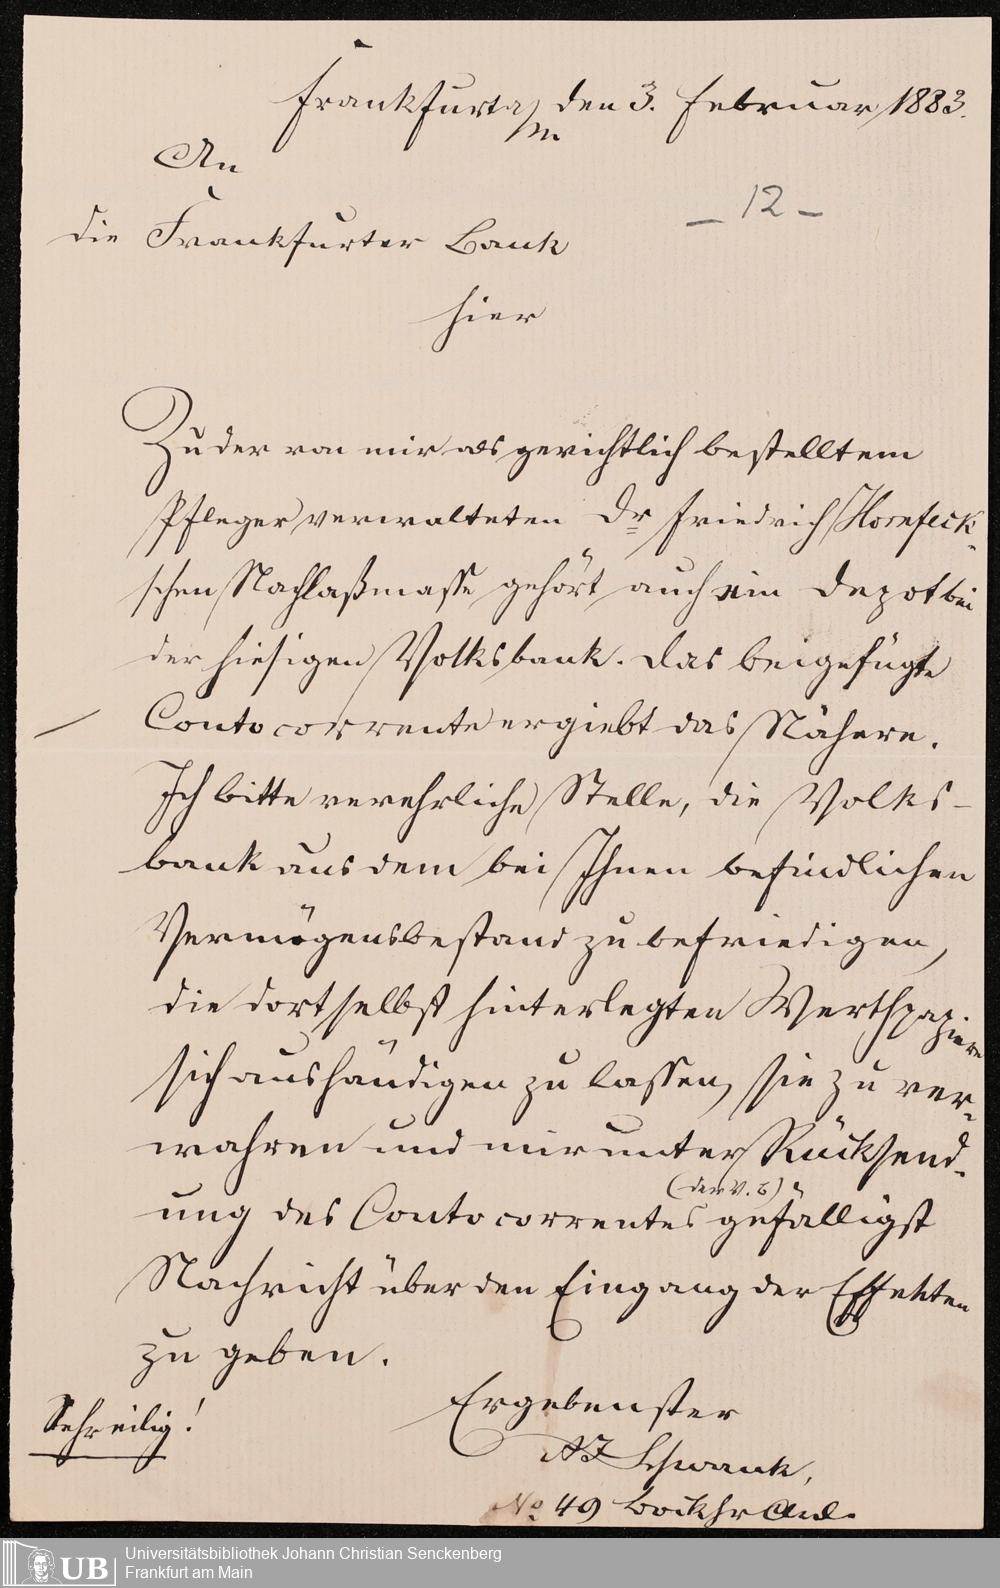 Frankfurt a/m den 3. Februar 1883.
An
die Frankfurter Bank
– 12 –
hier
Zu der von mir als gerichtlich bestelltem
Pfleger verwalteten Dr Friedrich Hornfeck-
schen Nachlaßmasse gehört auch ein Depot bei
der hiesigen Volksbank. Das beigefügte
Conto corrente ergiebt das Nähere.
Ich bitte verehrliche Stelle, die Volks-
bank aus dem bei Ihnen befindlichen
Vermögensbestand zu befriedigen,
die dortselbst hinterlegten Werthpapiere
sich aushändigen zu lassen, sie zu ver-
wahren und mir unter Rücksend-
(der V. b)
ung des Conto correntes gefälligst
Nachricht über den Eingang der Effekten
zu geben.
Sehr eilig!
Ergebenster
Schwank,
No 49
Universitätsbibliothek Johann Christian Senckenberg
Frankfurt am Main
UB